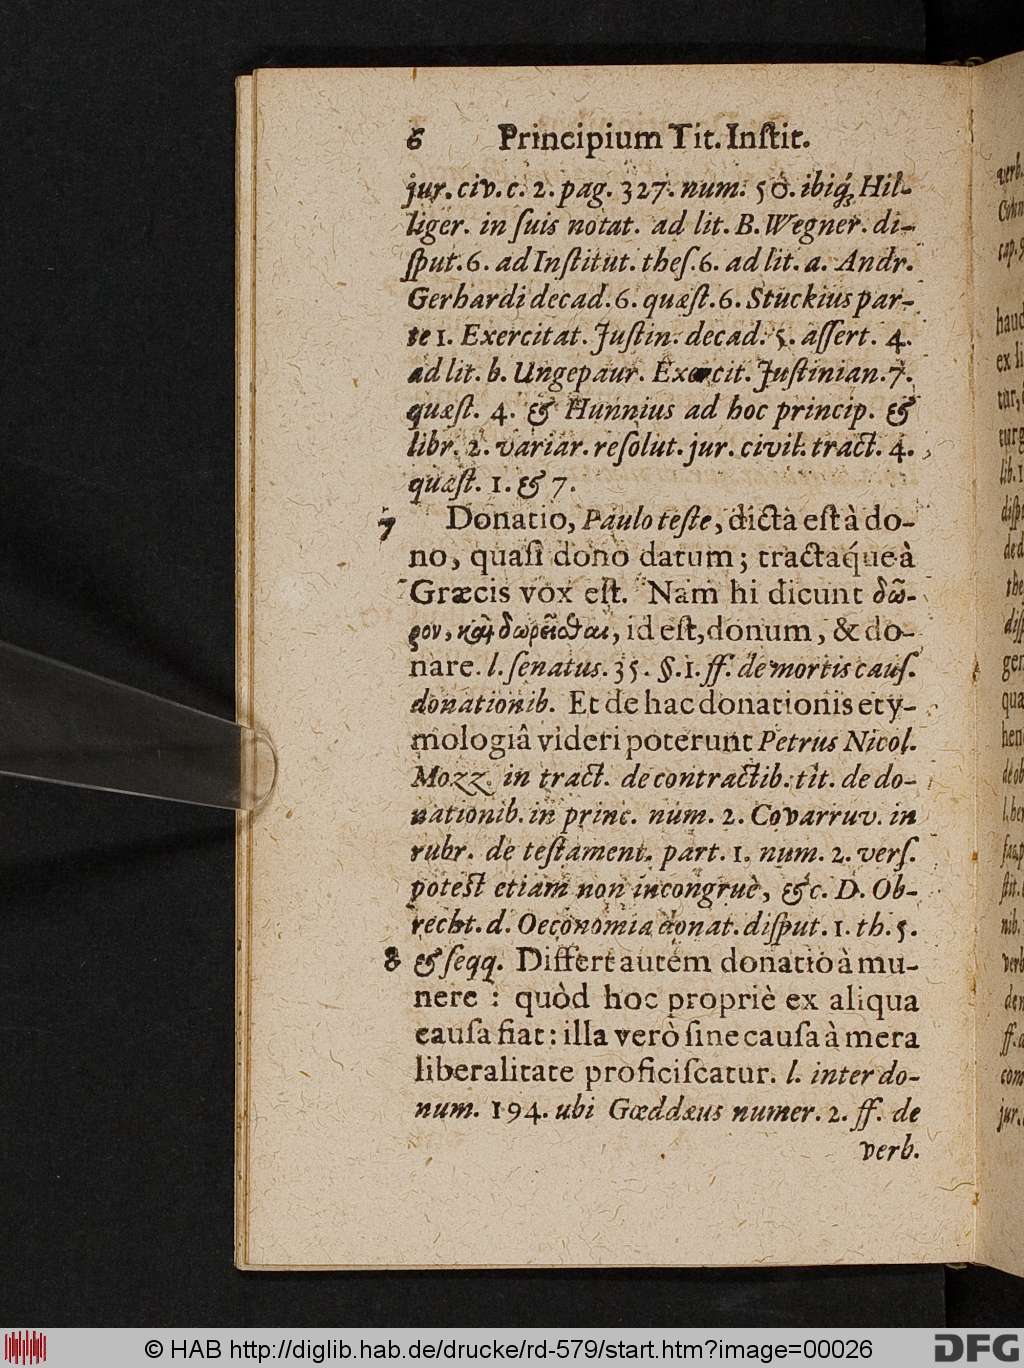 6 Principium Tit. Inſtit.
jur. civ. c. 2. pag. 327. num. 50. ibiq́; Hil-
liger. in ſuis notat. ad lit. B. Wegner. di-
ſput. 6. ad Inſtitut. theſ. 6. ad lit. a. Andr.
Gerhardi decad. 6. quæſt. 6. Stuckius par-
te 1. Exercitat. Juſtin. decad. 5. aſſert. 4.
ad lit. b. Ungepaur. Exercit. Juſtinian. 7.
quæſt. 4. & Hunnius ad hoc princip. &
libr. 2. variar. reſolut. jur. civil. tract. 4.
quæſt. 1. & 7.
7 Donatio, Paulo teſte, dicta eſt à do-
no, quaſi dono datum; tractaq́ue à
Græcis vox eſt. Nam hi dicunt δῶ-
ρον, καὶ δωρεῖσθαι, id eſt, donum, & do-
nare. l. ſenatus. 35. §. 1. ff. de mortis cauſ.
donationib. Et de hac donationis ety-
mologiâ videri poterunt Petrus Nicol.
Mozz. in tract. de contractib. tit. de do-
nationib. in princ. num. 2. Covarruv. in
rubr. de teſtament. part. 1. num. 2. verſ.
poteſt etiam non incongruè, &c. D. Ob-
recht. d. Oeconomia donat. diſput. 1. th. 5.
8 & ſeqq. Differt autem donatio à mu-
nere : quòd hoc propriè ex aliqua
cauſa fiat: illa verò ſine cauſa à mera
liberalitate proficiſcatur. l. inter do-
num. 194. ubi Gœddæus numer. 2. ff. de
verb.
© HAB http://diglib.hab.de/drucke/rd-579/start.htm?image=00026
DFG